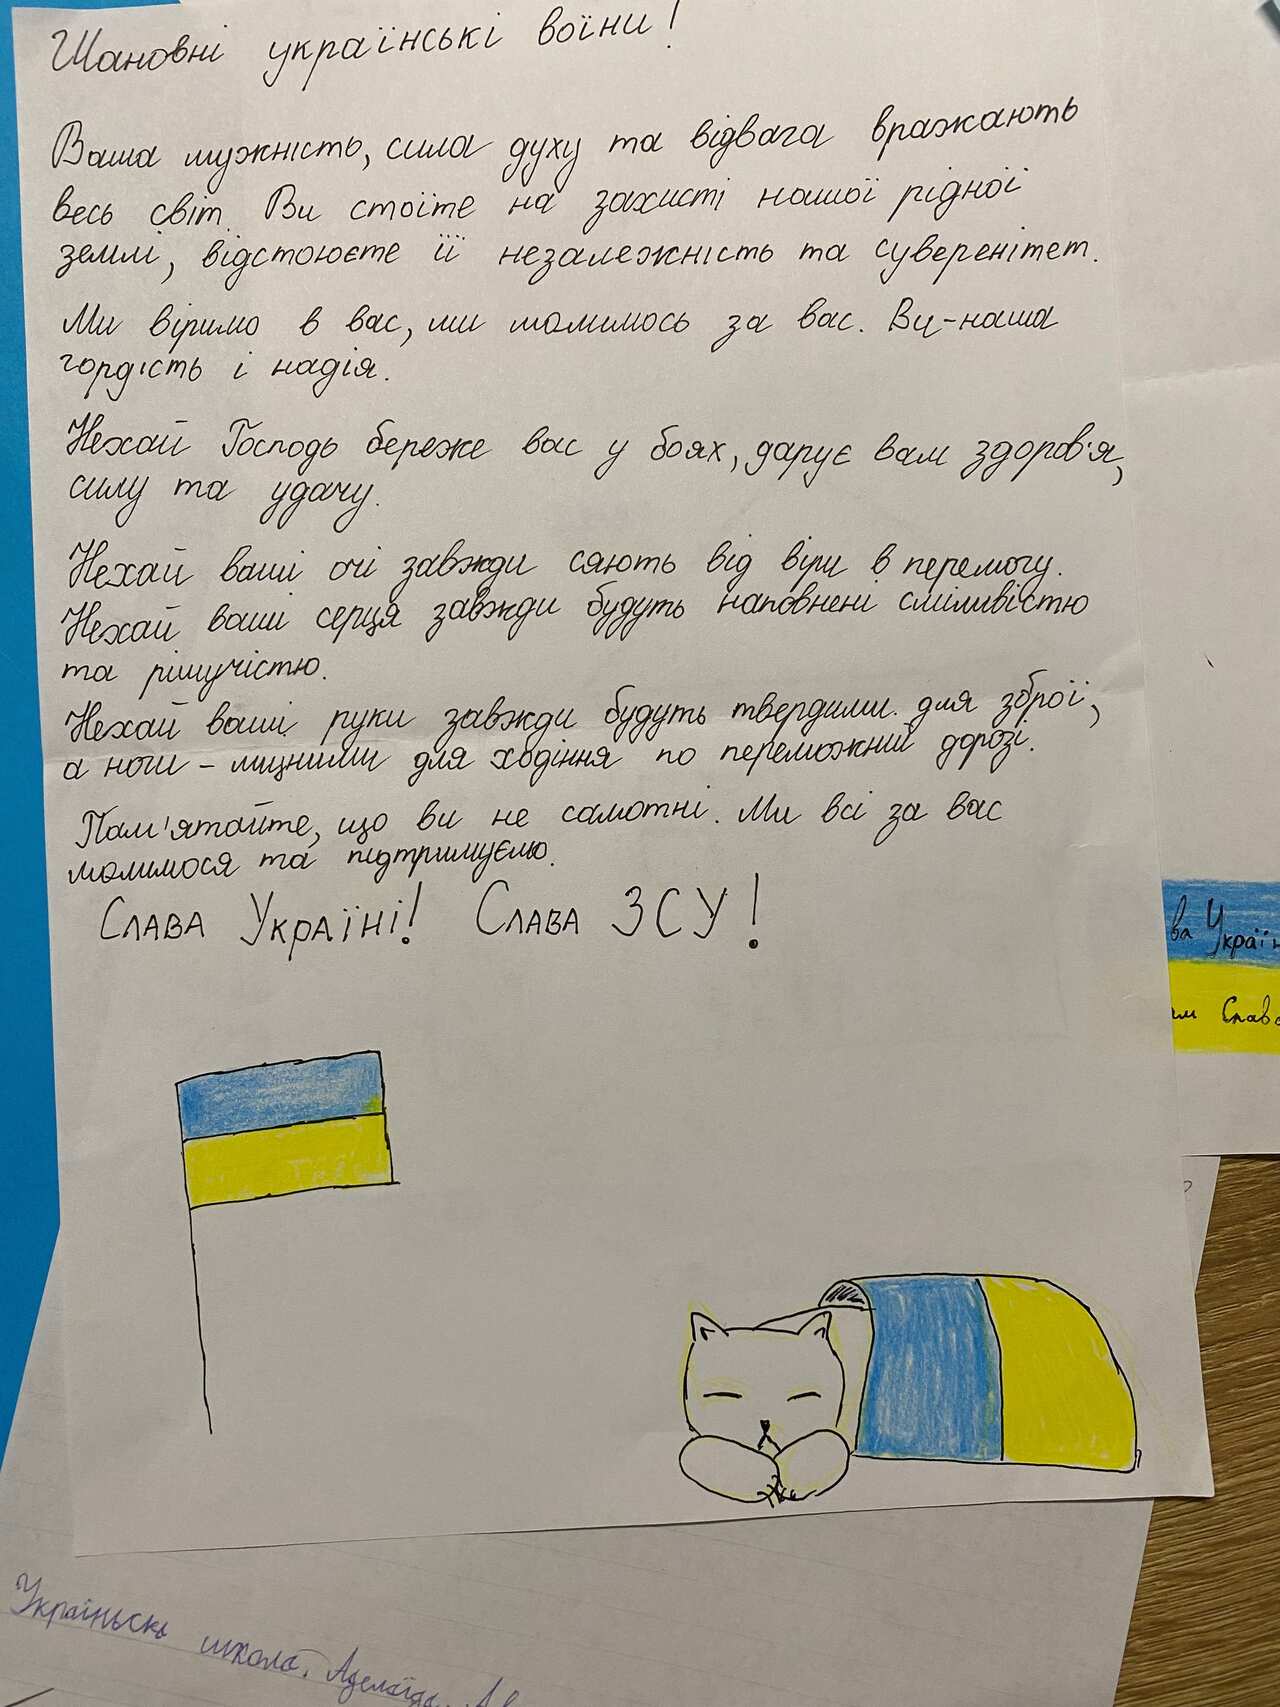 Шановні українські воїни!
Ваша мужність, сила духу та відвага вражають
весь світ. Ви стоїте на захисті нашої рідної
землі, відстоюєте її незалежність та суверенітет.
Ми віримо в вас, ми молимось за вас. Ви-наша
гордість і надія.
Нехай Господь береже вас у боях, дарує вам здоров'я,
силу та удачу.
Нехай ваші очі завжди сяють від віри в перемогу.
Нехай ваші серця завжди будуть наповнені сміливістю
та рішучістю.
Нехай ваші руки завжди будуть твердими для зброї,
а ноги – міцними для ходіння по переможній дорозі.
Пам'ятайте, що ви не самотні. Ми всі за вас
молимося та підтримуємо.
Слава Україні! Слава ЗСУ!
ва Україн
ям Слава
Українська школа. Аделаїда. Ав